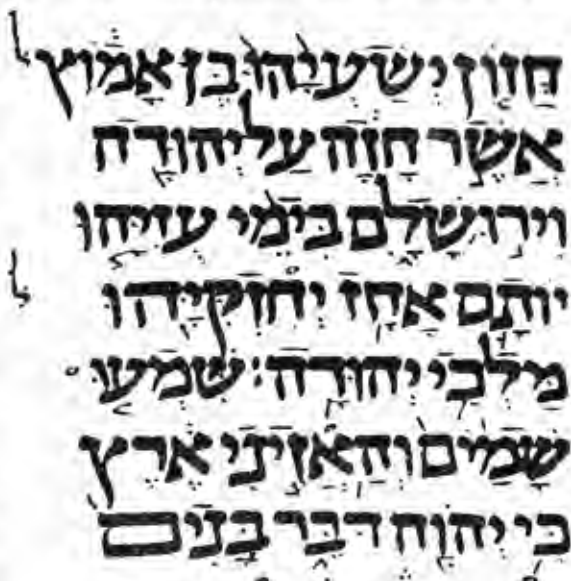 חֲזוֹן יְשַׁעְיָהוּ בֶן אָמוֹץ
אֲשֶׁר חָזָה עַל יְהוּדָה
וִירוּשָׁלִָם בִּימֵי עֻזִּיָּהוּ
יוֹתָם אָחָז יְחִזְקִיָּהוּ
מַלְכֵי יְהוּדָה׃ שִׁמְעוּ
שָׁמַיִם וְהַאֲזִינִי אֶרֶץ
כִּי יְהוָה דִּבֵּר בָּנִים